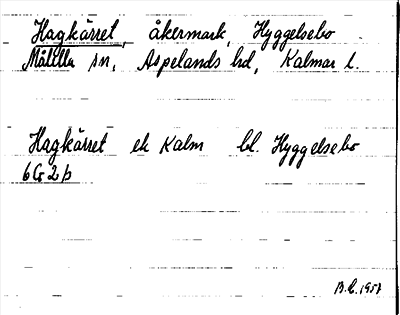 Hagkärret, åkermark, Hyggelsebo
Målilla sn, Aspelands hd, Kalmar l.
Hagkärret ek Kalm bl. Hyggelsebo
6G2b
B.L. 1957